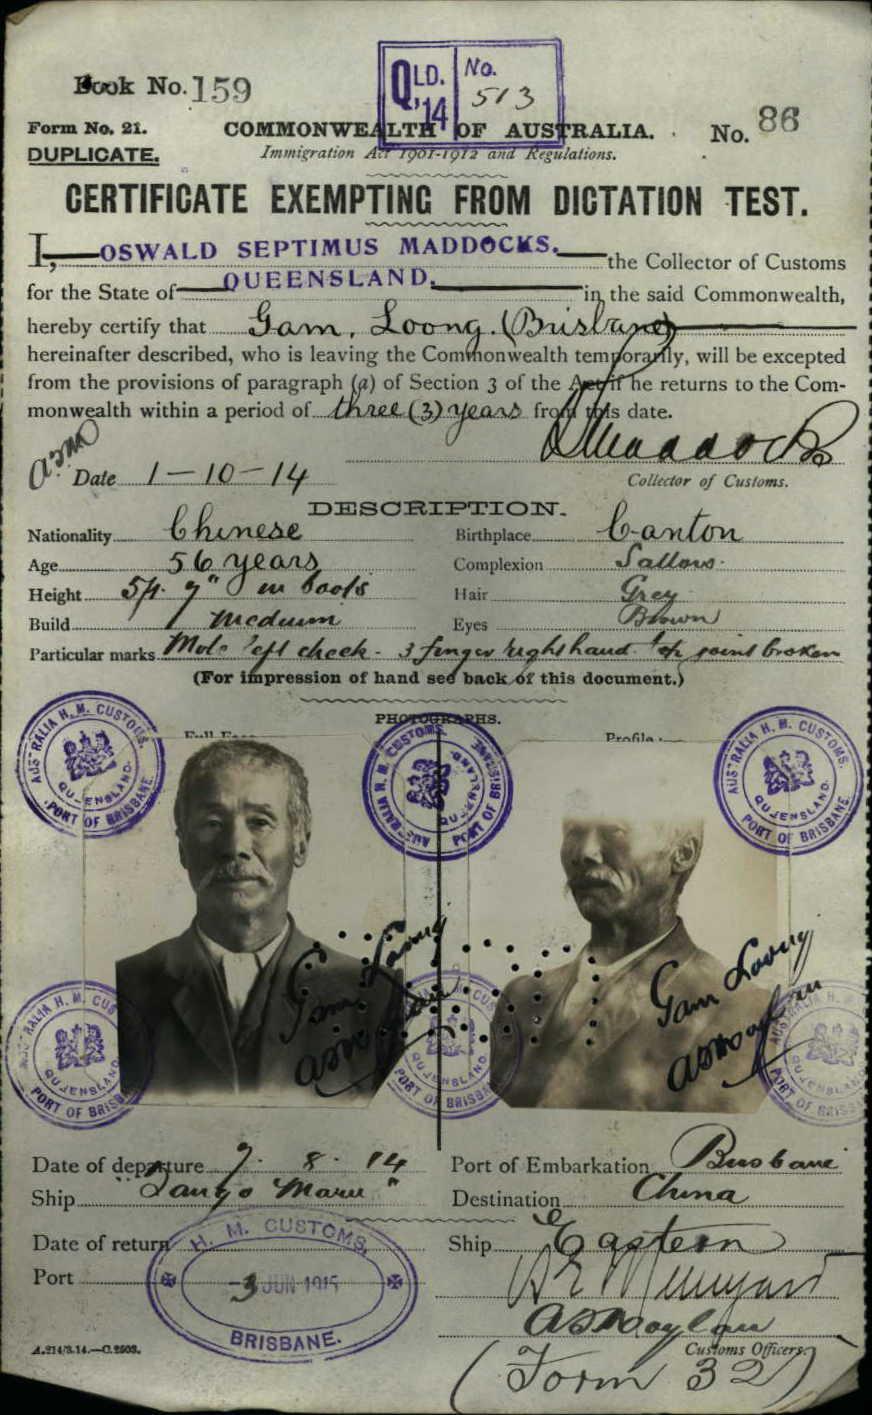 Book No. 159
QLD. '14 No. 513
Form No. 21. COMMONWEALTH OF AUSTRALIA. No. 86
DUPLICATE. Immigration Act 1901-1912 and Regulations.
CERTIFICATE EXEMPTING FROM DICTATION TEST.
I, OSWALD SEPTIMUS MADDOCKS. the Collector of Customs
for the State of QUEENSLAND. in the said Commonwealth,
hereby certify that Gam Loong. (Brisbane)
hereinafter described, who is leaving the Commonwealth temporarily, will be excepted
from the provisions of paragraph (a) of Section 3 of the Act if he returns to the Com-
monwealth within a period of three (3) years from this date.
ASM
OSMaddocks
Date 1-10-14 Collector of Customs.
DESCRIPTION.
Nationality Chinese Birthplace Canton
Age 56 years Complexion Sallow
Height 5ft. 7" in boots Hair Grey
Build Medium Eyes Brown
Particular marks Mole left cheek - 3 finger right hand top joint broken
(For impression of hand see back of this document.)
PHOTOGRAPHS.
Full Face Profile :—
AUSTRALIA H. M. CUSTOMS. QUEENSLAND. PORT OF BRISBANE.
AUSTRALIA H. M. CUSTOMS. QUEENSLAND. PORT OF BRISBANE
AUSTRALIA H. M. CUSTOMS. QUEENSLAND. PORT OF BRISBANE.
Gam Loong
ASMoylan
Gam Loong
ASMoylan
AUSTRALIA H. M. CUS QUEENSLA PORT OF BRISB
CUS QUEENSLA PORT OF BRISB
QUEENSLA PORT OF BRISB
Date of departure 7. 8. 14 Port of Embarkation Brisbane
Ship "Tango Maru" Destination China
Date of return Ship Eastern
Port
H. M. CUSTOMS,
-3 JUN 1915
BRISBANE.
ASMoylan
A.214/3.14.—C.2503. Customs Officers.
(Form 32)